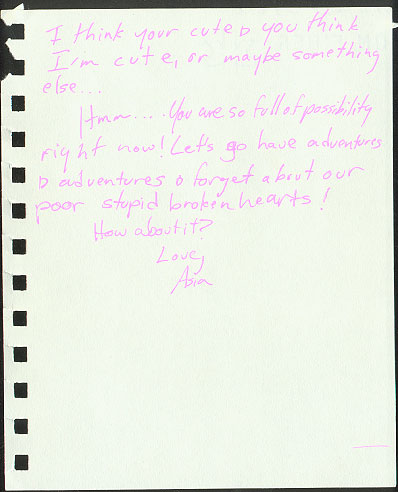 I think your cute & you think
I'm cute, or maybe something
else...
Hmm.... You are so full of possibility
right now! Let's go have adventures
& adventures & forget about our
poor stupid broken hearts!
How about it?
Love,
Asia